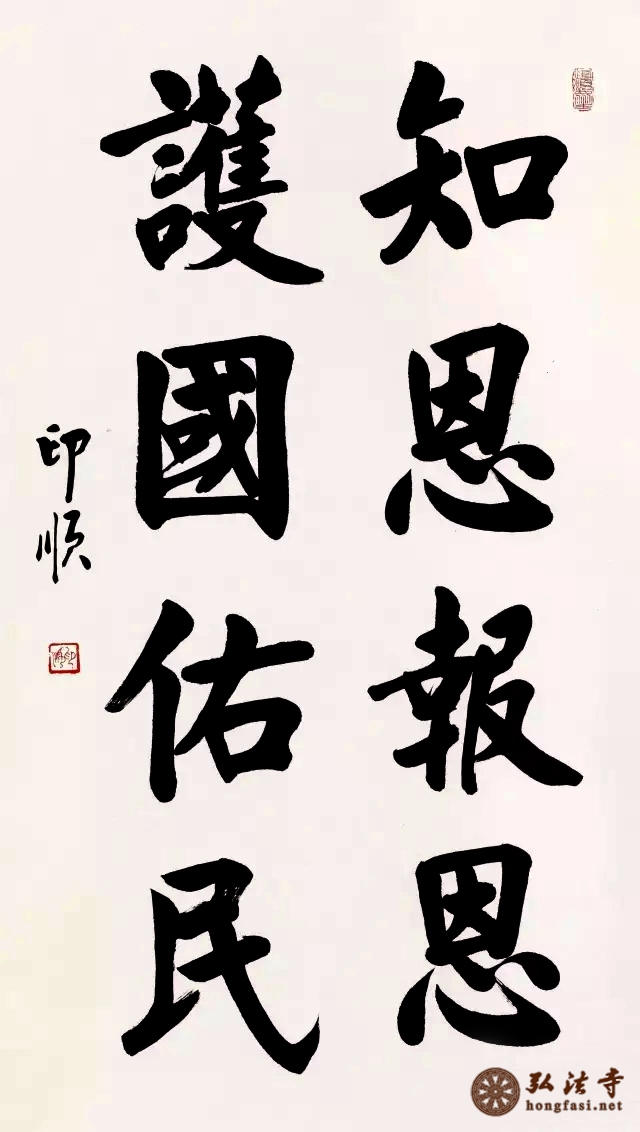 知恩報恩
護國佑民
印顺
弘法寺
hongfasi.net